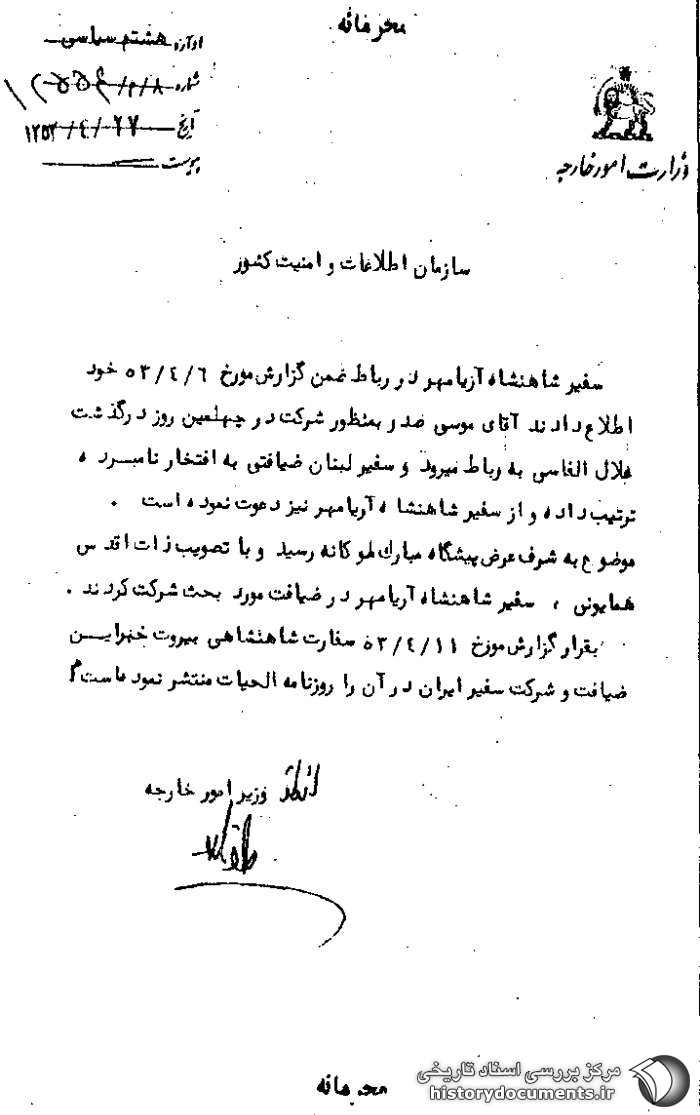 محرمانه
اداره هشتم سیاسی
شماره ۸/م/
تاریخ ۱۳۵۳/۴/۲۷
پیوست
وزارت امور خارجه
سازمان اطلاعات و امنیت کشور
سفیر شاهنشاه آریامهر در رباط ضمن گزارش مورخ ۵۳/۴/۶ خود
اطلاع دادند آقای موسی صدر بمنظور شرکت در چهلمین روز درگذشت
علال الفاسی به رباط میرود و سفیر لبنان ضیافتی به افتخار نامبرده
ترتیب داده و از سفیر شاهنشاه آریامهر نیز دعوت نموده است .
موضوع به شرف عرض پیشگاه مبارک ملوکانه رسید و با تصویب ذات اقدس
همایونی ، سفیر شاهنشاه آریامهر در ضیافت مورد بحث شرکت کردند .
بقرار گزارش مورخ ۵۳/۴/۱۱ سفارت شاهنشاهی بیروت خبر این
ضیافت و شرکت سفیر ایران در آن را روزنامه الحیات منتشر نموده است
وزیر امور خارجه
محرمانه
مرکز بررسی اسناد تاریخی
historydocuments.ir